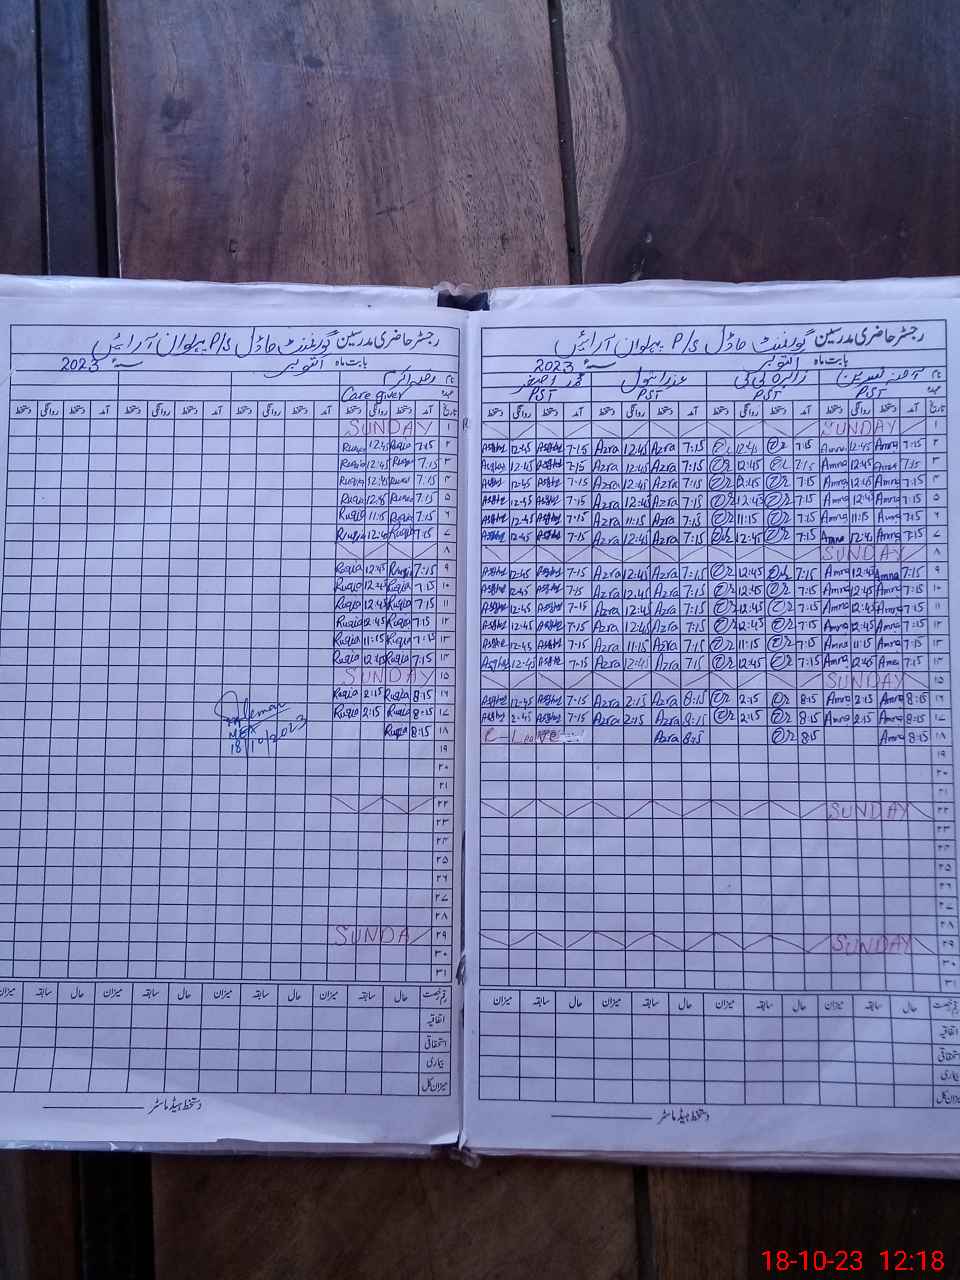 رجسٹر حاضری مدرسین گورنمنٹ ماڈل P/S پہلوان آرائیں
بابت ماہ اکتوبر سنہ 2023
نام
Care giver
تاریخ آمد دستخط روانگی دستخط آمد دستخط روانگی دستخط آمد دستخط روانگی دستخط
۱ SUNDAY
۲ 7:15 Ruqia 12:45 Ruqia
۳ 7:15 Ruqia 12:45 Ruqia
۴ 7:15 Ruqia 12:45 Ruqia
۵ 7:15 Ruqia 12:45 Ruqia
۶ 7:15 Ruqia 11:15 Ruqia
۷ 7:15 Ruqia 12:45 Ruqia
۸
۹ 7:15 Ruqia 12:45 Ruqia
۱۰ 7:15 Ruqia 12:45 Ruqia
۱۱ 7:15 Ruqia 12:45 Ruqia
۱۲ 7:15 Ruqia 12:45 Ruqia
۱۳ 7:15 Ruqia 11:15 Ruqia
۱۴ 7:15 Ruqia 12:45 Ruqia
۱۵ SUNDAY
۱۶ 8:15 Ruqia 2:15 Ruqia
۱۷ 8:15 Ruqia 2:15 Ruqia
۱۸ 8:15 Ruqia
MEA
18/10/2023
۱۹
۲۰
۲۱
۲۲
۲۳
۲۴
۲۵
۲۶
۲۷
۲۸
۲۹ SUNDAY
۳۰
۳۱
قسم رخصت حال سابقہ میزان حال سابقہ میزان حال سابقہ میزان حال سابقہ میزان
اتفاقیہ
استحقاقی
بیماری
میزان کل
دستخط ہیڈ ماسٹر
رجسٹر حاضری مدرسین گورنمنٹ ماڈل P/S پہلوان آرائیں
بابت ماہ اکتوبر سنہ 2023
نام آمنہ نسرین زائرہ بی بی عذرا بتول محمد اصغر
PST PST PST PST
تاریخ آمد دستخط روانگی دستخط آمد دستخط روانگی دستخط آمد دستخط روانگی دستخط آمد دستخط روانگی دستخط
۱ SUNDAY
۲ 7:15 Amna 12:45 Amna 7:15 12:45 7:15 Azra 12:45 Azra 7:15 Asghar 12:45 Asghar
۳ 7:15 Amna 12:45 Amna 7:15 12:45 7:15 Azra 12:45 Azra 7:15 Asghar 12:45 Asghar
۴ 7:15 Amna 12:45 Amna 7:15 12:45 7:15 Azra 12:45 Azra 7:15 Asghar 12:45 Asghar
۵ 7:15 Amna 12:45 Amna 7:15 12:45 7:15 Azra 12:45 Azra 7:15 Asghar 12:45 Asghar
۶ 7:15 Amna 11:15 Amna 7:15 11:15 7:15 Azra 11:15 Azra 7:15 Asghar 12:45 Asghar
۷ 7:15 Amna 12:45 Amna 7:15 12:45 7:15 Azra 12:45 Azra 7:15 Asghar 12:45 Asghar
۸ SUNDAY
۹ 7:15 Amna 12:45 Amna 7:15 12:45 7:15 Azra 12:45 Azra 7:15 Asghar 12:45 Asghar
۱۰ 7:15 Amna 12:45 Amna 7:15 12:45 7:15 Azra 12:45 Azra 7:15 Asghar 12:45 Asghar
۱۱ 7:15 Amna 12:45 Amna 7:15 12:45 7:15 Azra 12:45 Azra 7:15 Asghar 12:45 Asghar
۱۲ 7:15 Amna 12:45 Amna 7:15 12:45 7:15 Azra 12:45 Azra 7:15 Asghar 12:45 Asghar
۱۳ 7:15 Amna 11:15 Amna 7:15 11:15 7:15 Azra 11:15 Azra 7:15 Asghar 12:45 Asghar
۱۴ 7:15 Amna 12:45 Amna 7:15 12:45 7:15 Azra 12:45 Azra 7:15 Asghar 12:45 Asghar
۱۵ SUNDAY
۱۶ 8:15 Amna 2:15 Amna 8:15 2:15 8:15 Azra 2:15 Azra 7:15 Asghar 2:45 Asghar
۱۷ 8:15 Amna 2:15 Amna 8:15 2:15 8:15 Azra 2:15 Azra 7:15 Asghar 2:45 Asghar
۱۸ 8:15 Amna 8:15 8:15 Azra C-Leave
۱۹
۲۰
۲۱
۲۲ SUNDAY
۲۳
۲۴
۲۵
۲۶
۲۷
۲۸
۲۹ SUNDAY
۳۰
۳۱
قسم رخصت حال سابقہ میزان حال سابقہ میزان حال سابقہ میزان حال سابقہ میزان
اتفاقیہ
استحقاقی
بیماری
میزان کل
دستخط ہیڈ ماسٹر
18-10-23 12:18